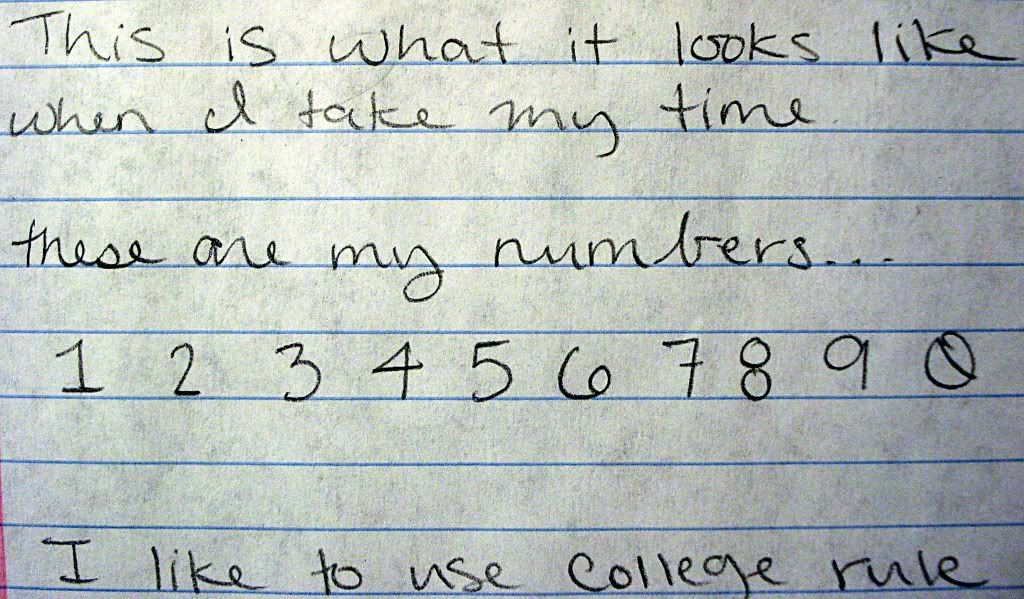 This is what it looks like
when I take my time.
these are my numbers...
1 2 3 4 5 6 7 8 9 0
I like to use college rule